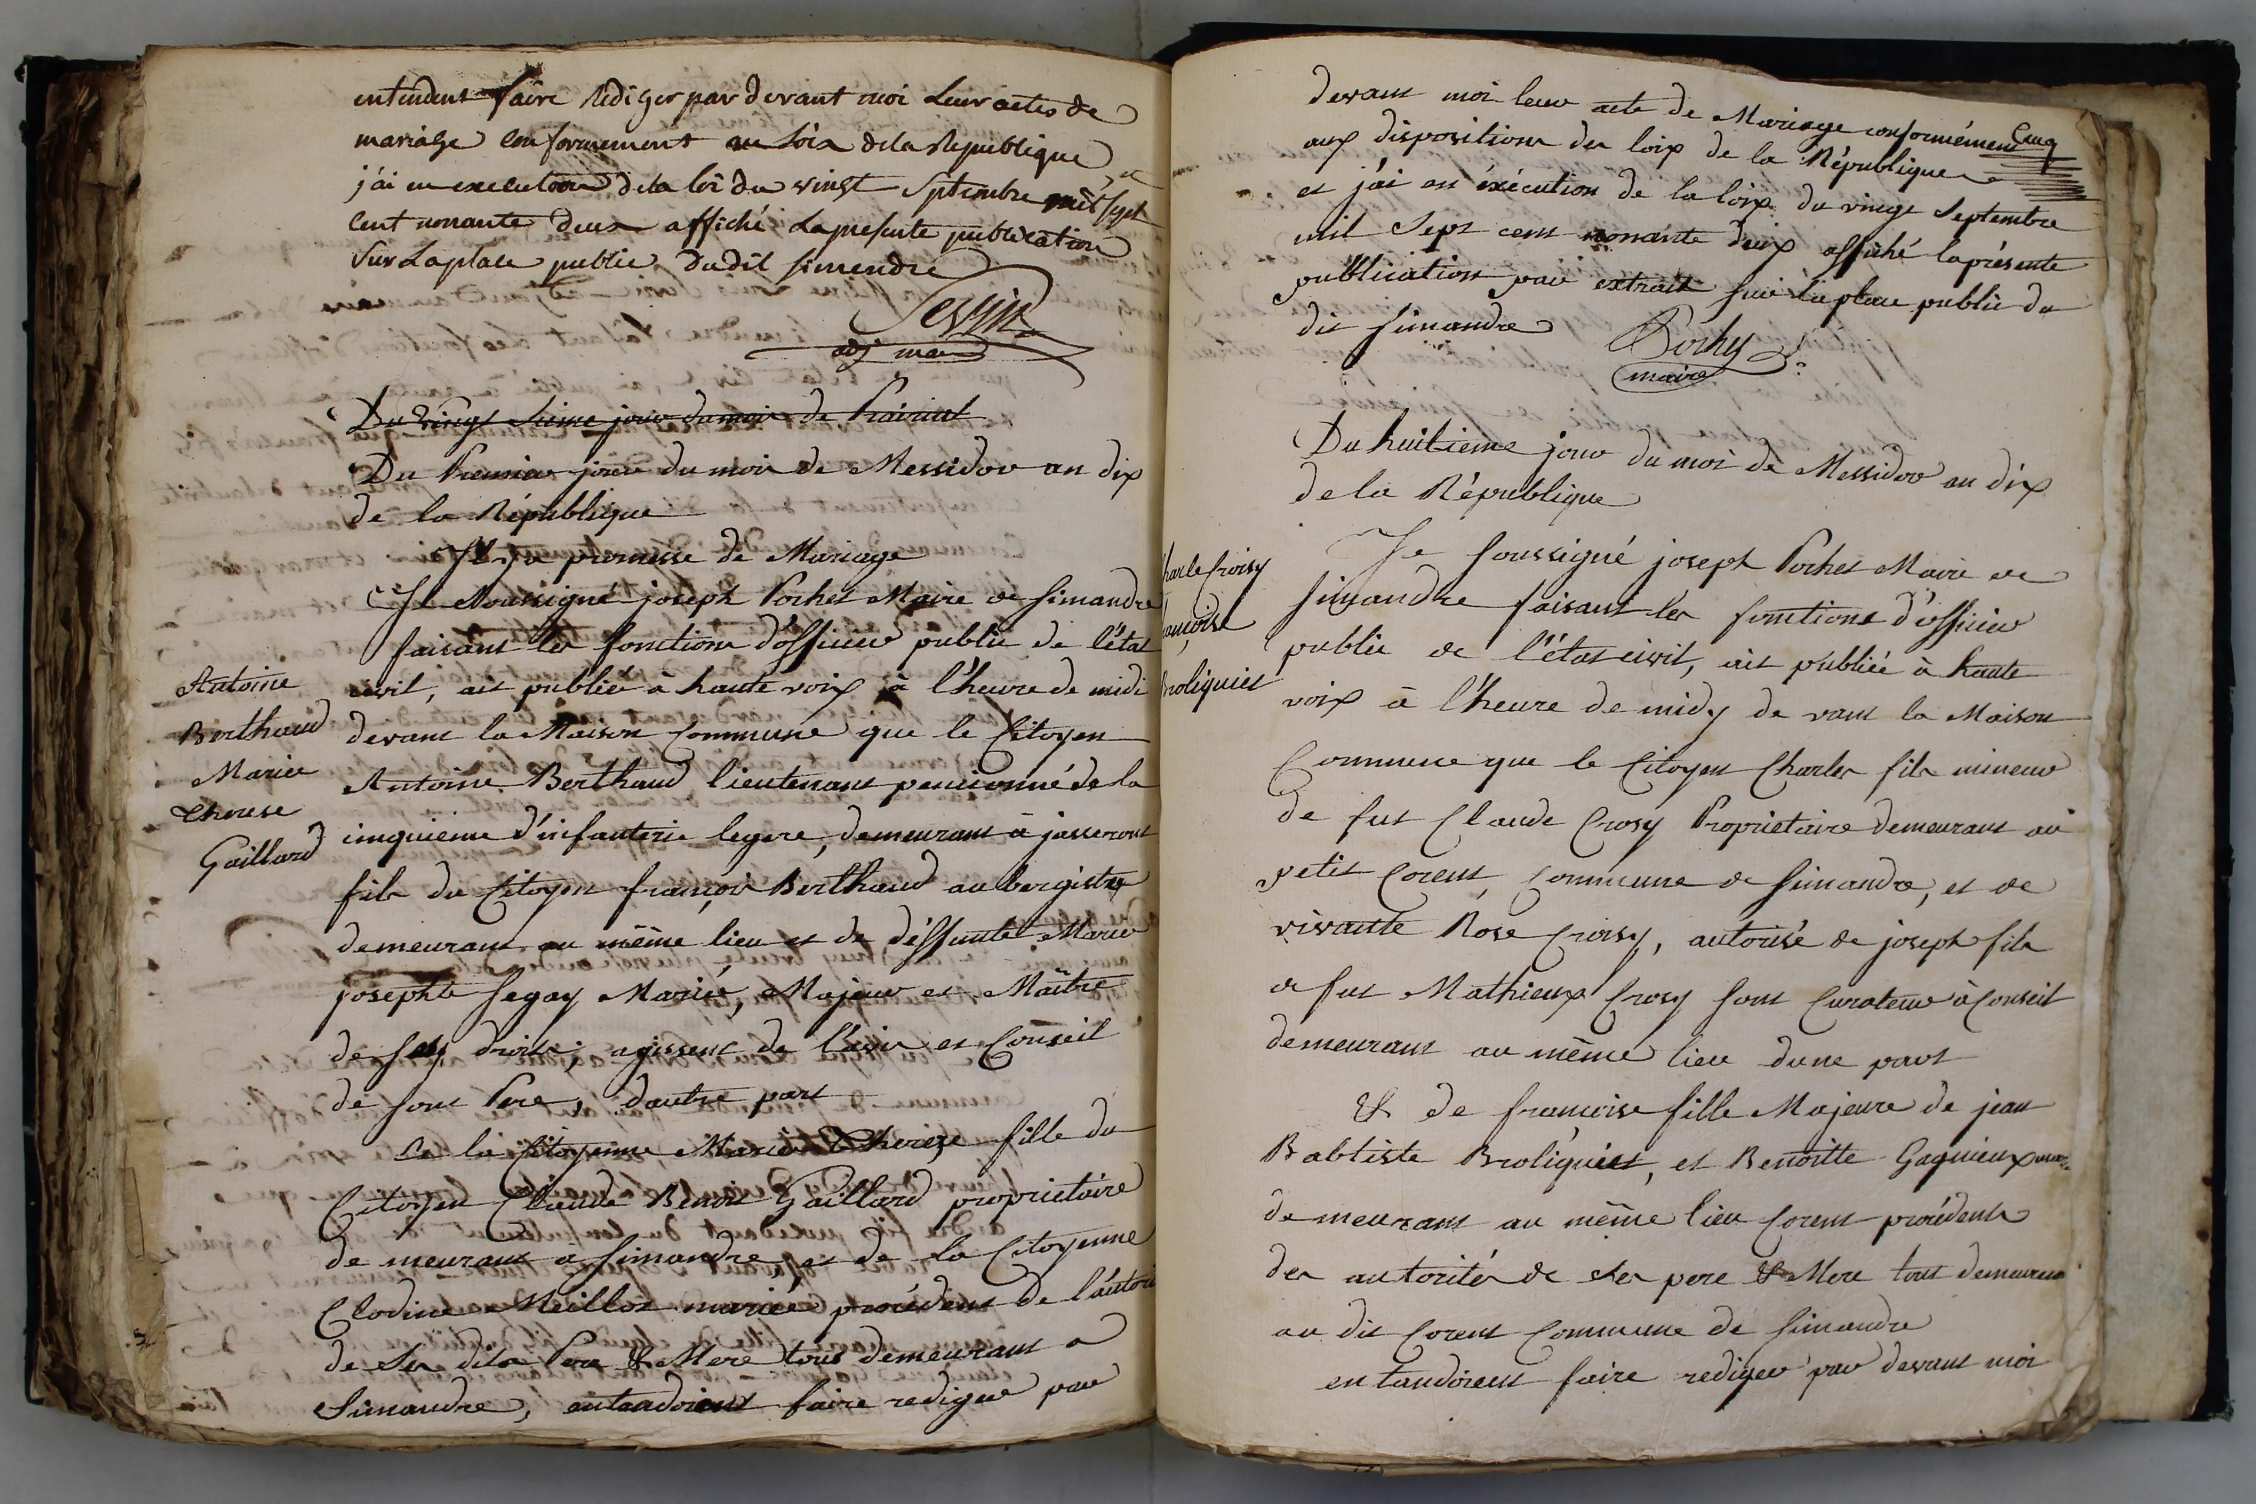 entendent faire rediger par devant moi Leur actes de
mariage Conformement au Loix dela Republique
j'ai en execution dela loi du vingt Septembre mil sept
Cent nonante deux affiché La presente publication
Sur La place public dudit simendre
Tessin
adj maire
Du vingt sixime jour du mois de Prairial
Du Premier jour du mois de Messidor an dix
de la République
Il y a promesse de Mariage
Je Soussigné joseph Pochet Maire de Simandre
faisant les fonctions d'officier public de l'état
civil, ait publié à haute voix à l'heure de midi
devant la Maison Commune que le Citoyen
Antoine Berthaud lieutenant pencionné de la
cinquieme d'infanterie legere, demeurant à jasseront
fils du Citoyen françois Berthaud aubergistre
demeurant au même lieu et de déffunte Marie
josephte Segay Marié, Majeur et Maître
de ses droits; agissent de l'avis et Conseil
de son Pere, dautre part
De la Citoyenne Marie Thereze fille du
Citoyen Claude Benoit Gaillard proprietaire
de meurant à Simandre et de la Citoyenne
Clodine Meilloz mariée procédent de l'autori
de Ses dits Pere & Mere tous demeurant a
Simandre, entandoient faire rediger par
Antoine
Berthaud
Mariee
Therese
Gaillard
Cinq
devant moi leur acte de Mariage conformément
aux dispositions des loix de la République
et j'ai en éxécution de la loix du vingt Septembre
mil Sept cent nonante deux affiché la présente
publication par extrait sur la place public du
dit Simandre
Pochy
maire
Du huitieme jour du mois de Messidor an dix
de la République
Je soussigné joseph Pochet Maire de
Simandre faisant les fonctions d'officier
public de l'état civil, ait publiée à haute
voix à l'heure de midy de vant la Maison
Commune que le Citoyen Charles fils mineur
de fut Claude Crosy Proprietaire demeurant au
petit Corent Commune de Simandre, et de
vivante Rose Croisy, autorisé de joseph fils
de fut Mathieux Crosy sont Curateur à Conseil
demeurant au même lieu dune part
& de françoise fille Majeure de jean
Babtiste Broliquiet, et Benoitte Gaguieux
demeurant au même lieu Corent procédent
des autorités de Ses pere & Mere tous demeurent
au dit Corent Commune de Simandre
entandoient faire rediger par devant moi
harle Croisy
ançoise
roliquiet